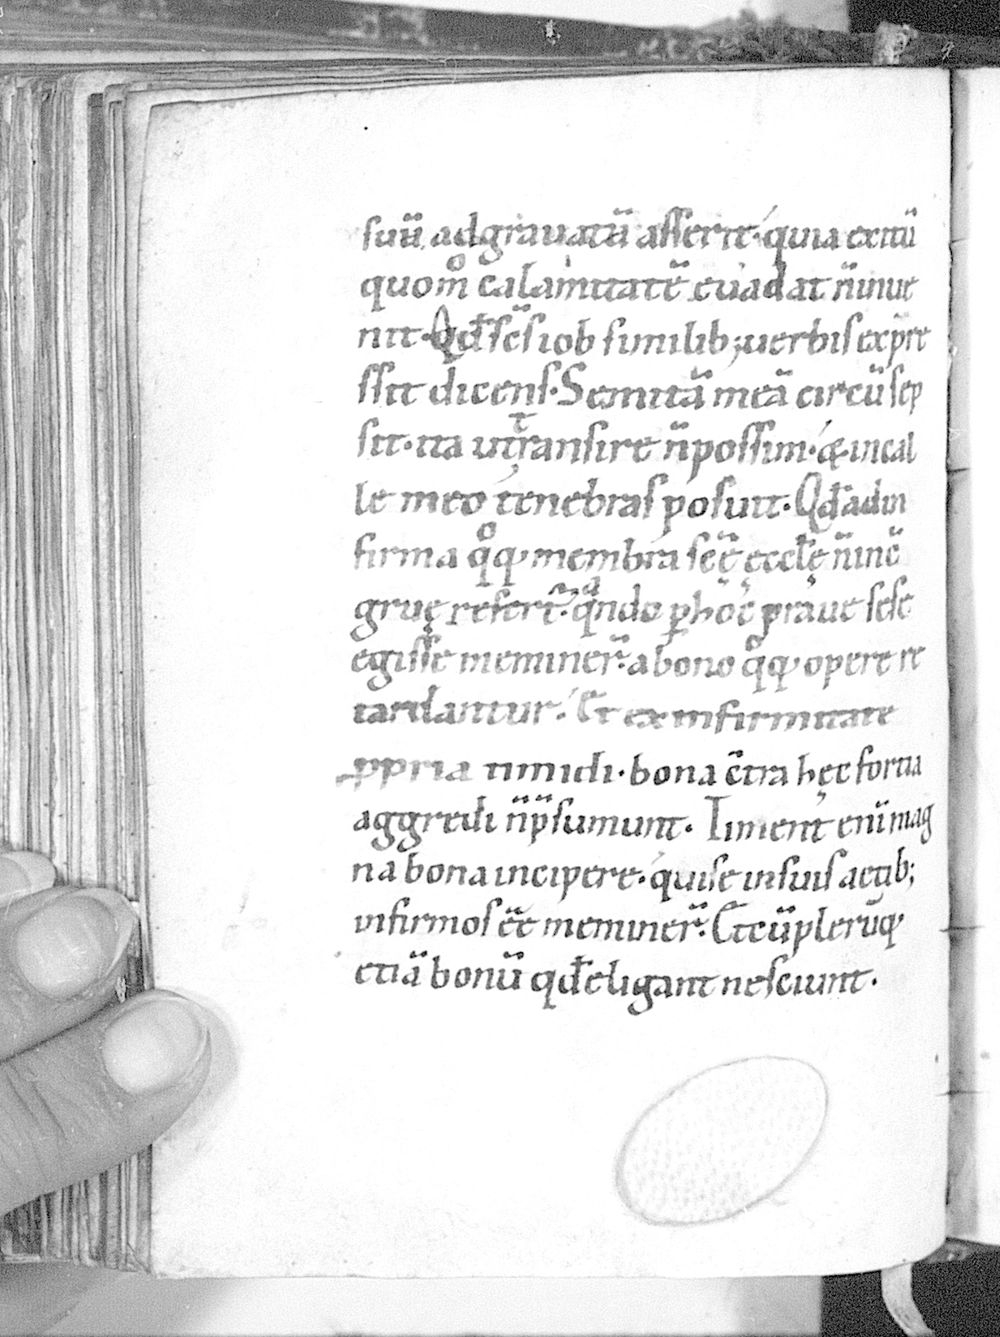 suū adgrauatū asserit· quia exitū
quom̊ calamitatē euadat n̄ inue
nit· Qđ sc̄s iob similib; uerbis exp̄re
ssit dicens· Semitā meā circū sep
sit· ita ut transire n̄ possim· & in cal
le meo tenebras posuit· Qđ ad in
firma q̊q; membra sc̄ę eccl̄ę n̄ inc̄
gruę refert̄· qᵃndo ꝑ hoc̄ praue se se
egisse meminer̄· a bono q̊q; opere re
tardantur· Et ex infirmitate
ꝓpria timidi· bona c̄tra hęc fortia
aggredi n̄ p̄sumunt· Timent enī mag
na bona incipere· qui se in suis actib;
infirmos ēē meminer̄· Et cū plerūq;
etiā bonū qđ eligant nesciunt·